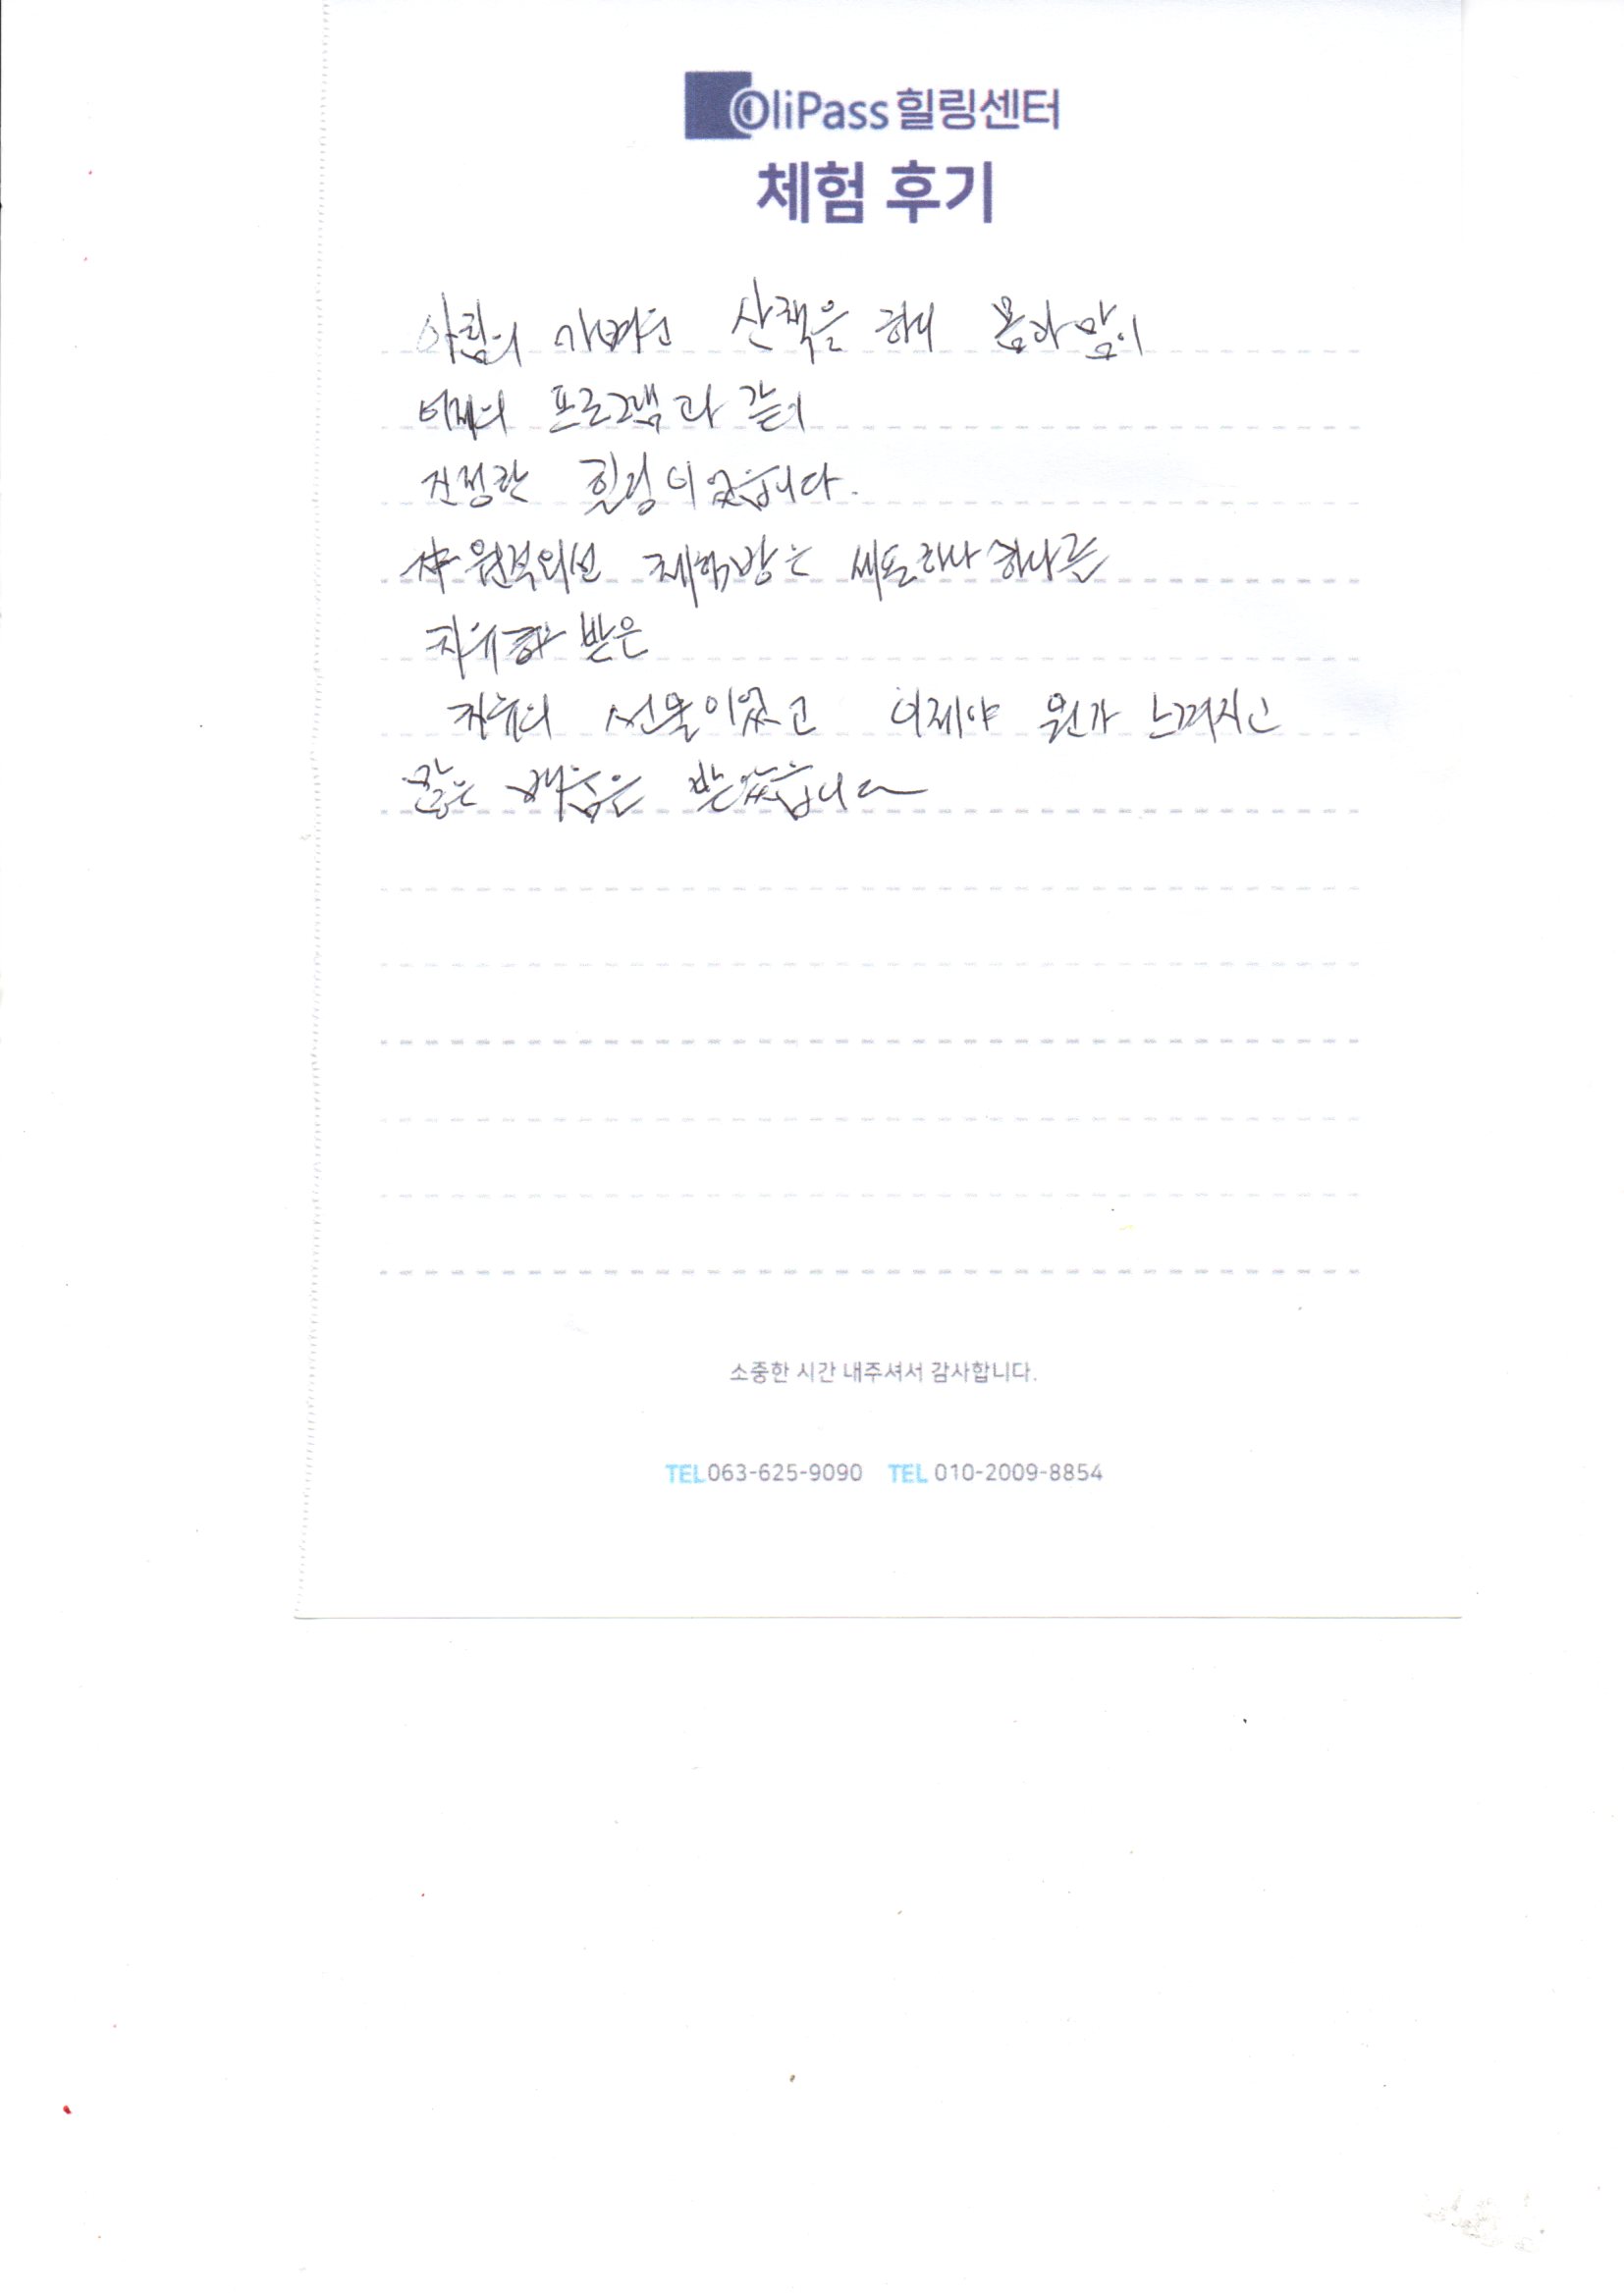 OliPass 힐링센터
체험 후기
아침의 가벼운 산책을 하니 몸과 맘이
어제의 프로그램과 같이
진정한 힐링이었습니다.
하나 하나를
치유 받은
치유의 선물이었고 이제야 뭔가 느껴지고
많은 배움을 받았습니다
소중한 시간 내주셔서 감사합니다.
TEL 063-625-9090 TEL 010-2009-8854